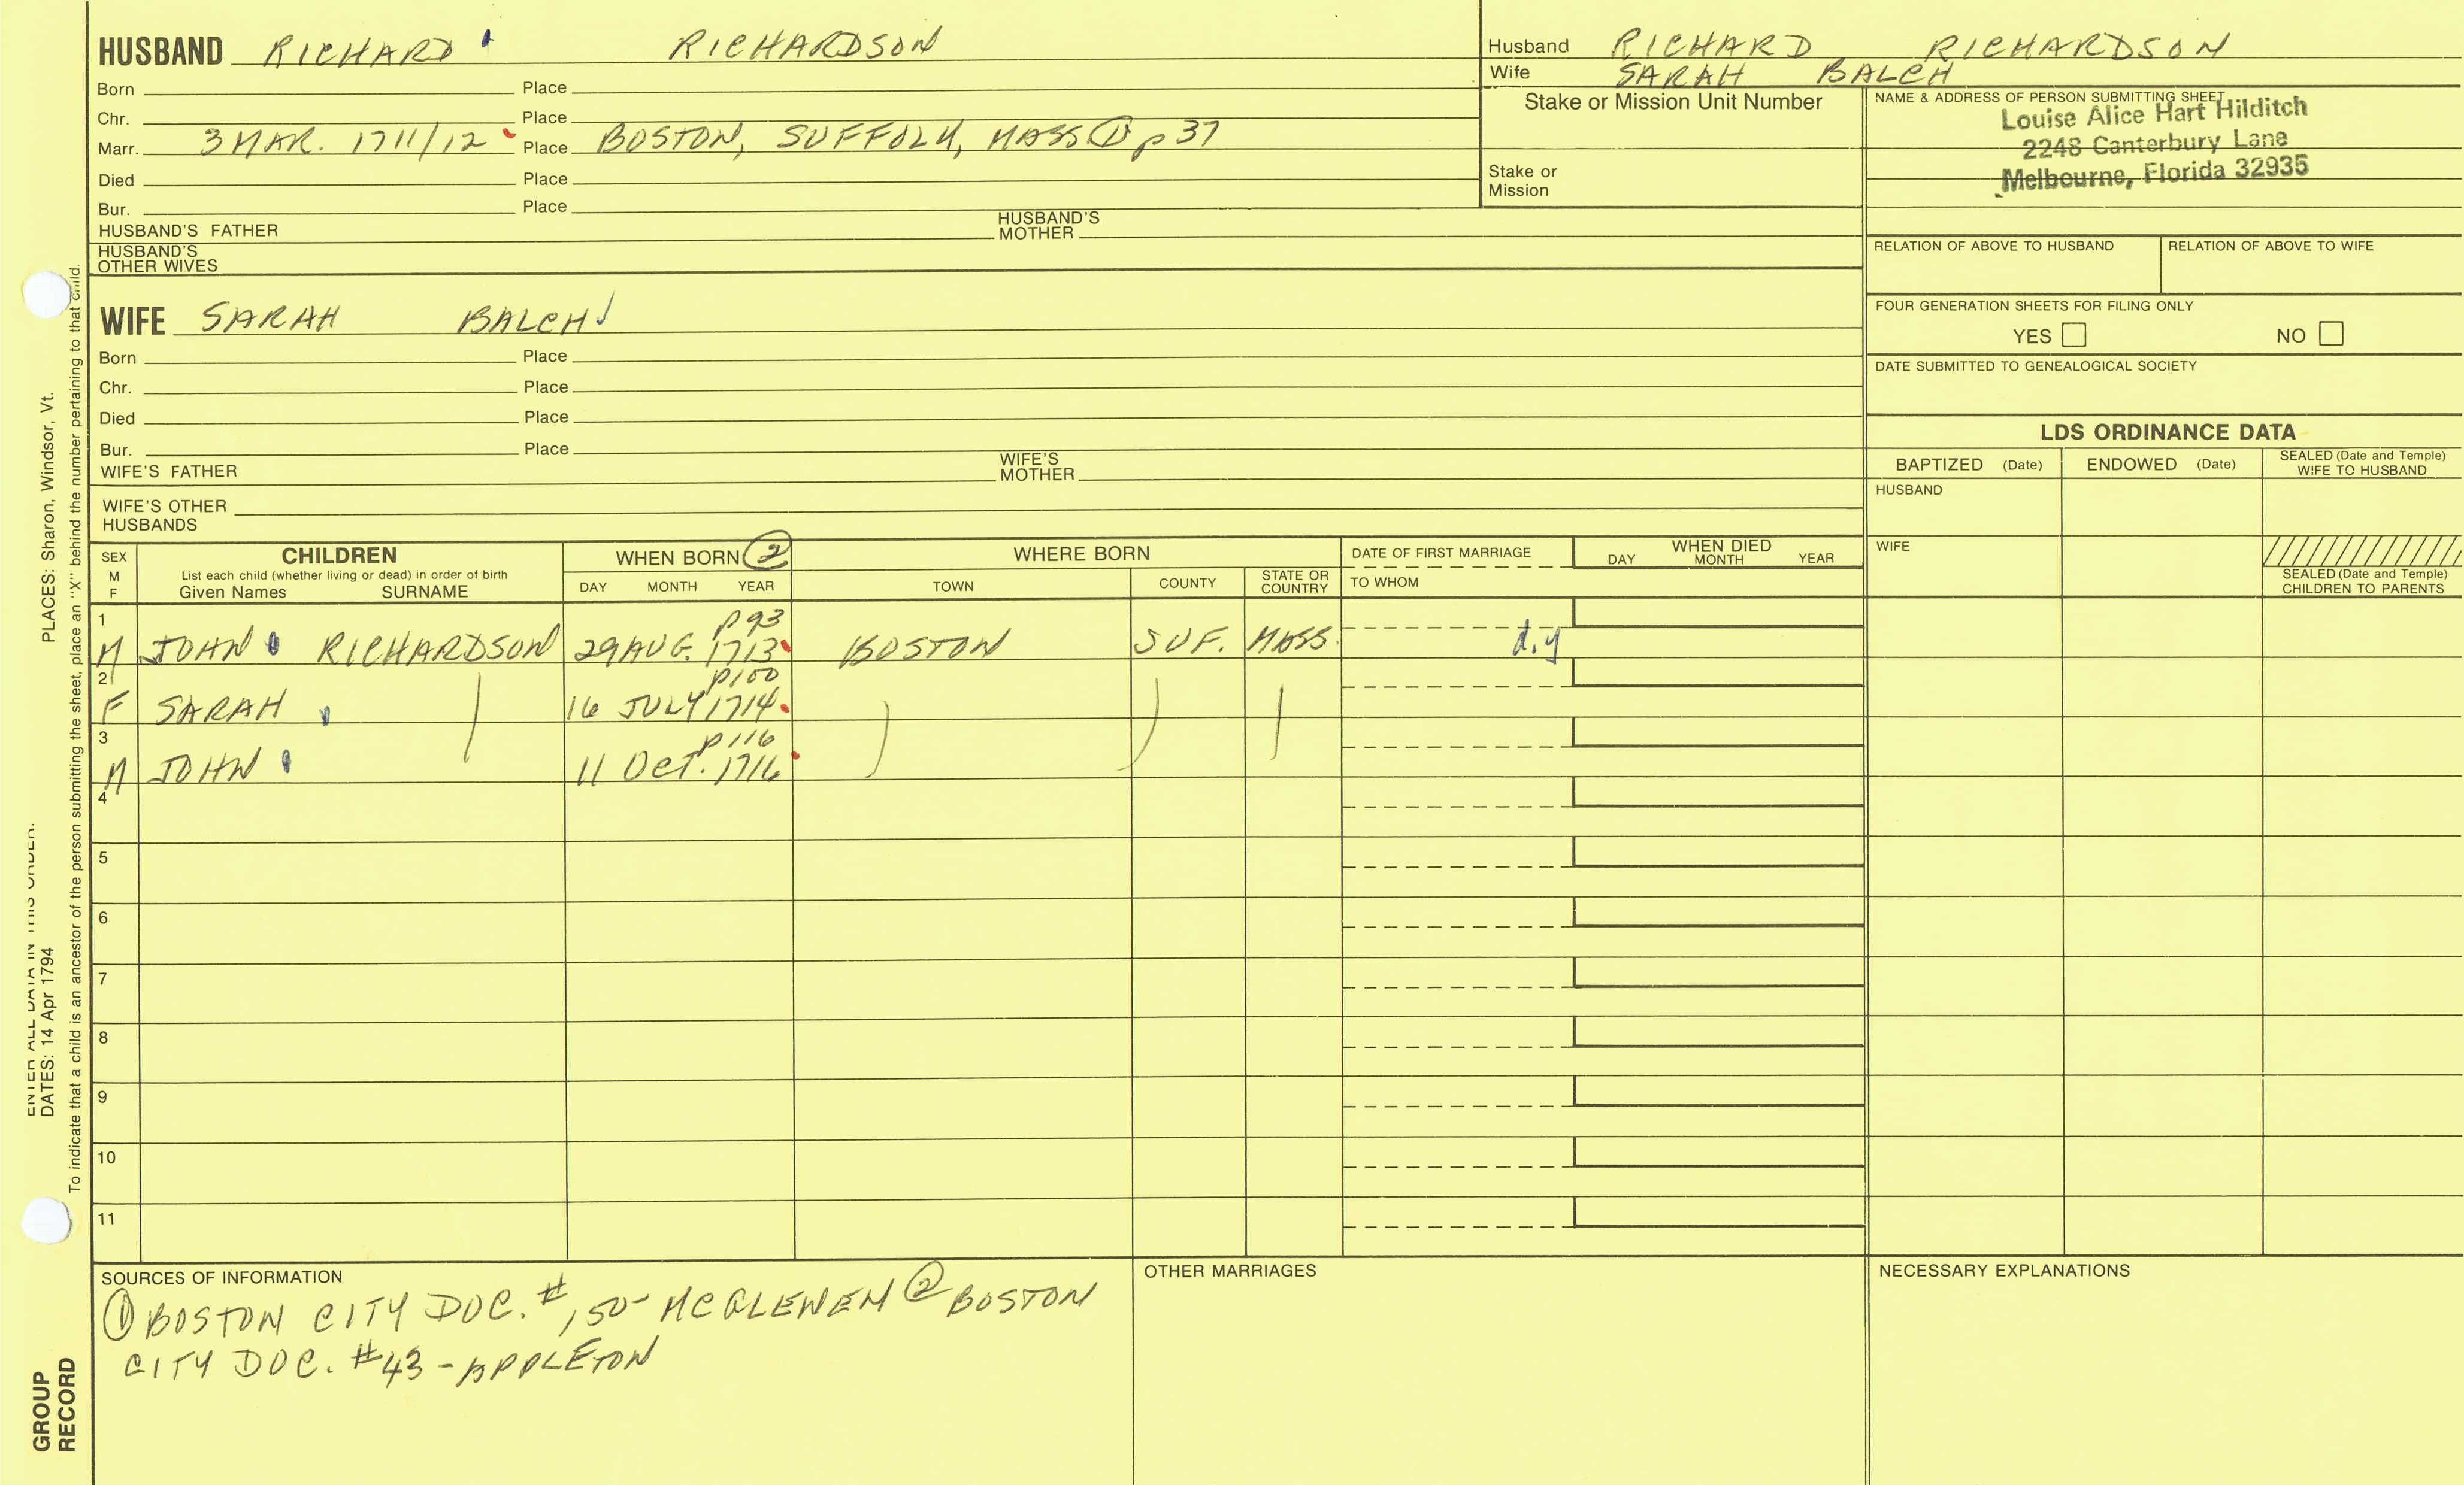 HUSBAND RICHARD RICHARDSON
Born Place
Chr. Place
Marr. 3 MAR. 1711/12 Place BOSTON, SUFFOLK, MASS ① p 37
Died Place
Bur. Place
HUSBAND'S FATHER HUSBAND'S MOTHER
HUSBAND'S OTHER WIVES
WIFE SARAH BALCH
Born Place
Chr. Place
Died Place
Bur. Place
WIFE'S FATHER WIFE'S MOTHER
WIFE'S OTHER HUSBANDS
Husband RICHARD RICHARDSON
Wife SARAH BALCH
Stake or Mission Unit Number
Stake or Mission
NAME & ADDRESS OF PERSON SUBMITTING SHEET
Louise Alice Hart Hilditch
2248 Canterbury Lane
Melbourne, Florida 32935
RELATION OF ABOVE TO HUSBAND RELATION OF ABOVE TO WIFE
FOUR GENERATION SHEETS FOR FILING ONLY
YES NO
DATE SUBMITTED TO GENEALOGICAL SOCIETY
LDS ORDINANCE DATA
BAPTIZED (Date) ENDOWED (Date) SEALED (Date and Temple) WIFE TO HUSBAND
HUSBAND
WIFE
SEALED (Date and Temple) CHILDREN TO PARENTS
SEX M F CHILDREN WHEN BORN ② WHERE BORN DATE OF FIRST MARRIAGE WHEN DIED
List each child (whether living or dead) in order of birth
Given Names SURNAME DAY MONTH YEAR TOWN COUNTY STATE OR COUNTRY TO WHOM DAY MONTH YEAR
1 p 93
M JOHN RICHARDSON 29 AUG. 1713 BOSTON SUF. MASS. d.y
2 p 100
F SARAH 16 JULY 1714
3 p 116
M JOHN 11 OCT. 1716
4
5
6
7
8
9
10
11
SOURCES OF INFORMATION
① BOSTON CITY DOC. #150- MCGLENEN ② BOSTON
CITY DOC. #43 - APPLETON
OTHER MARRIAGES
NECESSARY EXPLANATIONS
ENTER ALL DATA IN THIS ORDER:
DATES: 14 Apr 1794 PLACES: Sharon, Windsor, Vt.
To indicate that a child is an ancestor of the person submitting the sheet, place an "X" behind the number pertaining to that child.
GROUP
RECORD